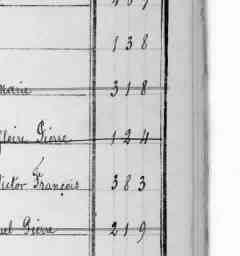 138
marie 318
Pierre 124
Victor François 383
uel Pierre 219